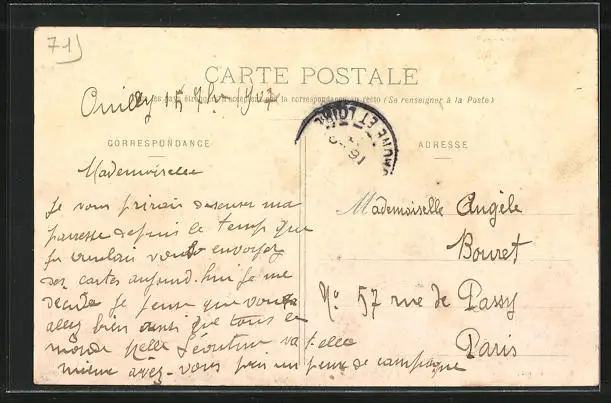 71)
CARTE POSTALE
la correspondance au recto (Se renseigner à la Poste)
15 7bre 1907
ONE ET LOIRE
CORRESPONDANCE
ADRESSE
Mademoiselle
Je vous prierai d'excuser ma
paresse depuis le temps que
je voulais vous envoyez
des cartes aujourd'hui je me
décide je pense que vous
allez bien ainsi que tous le
monde va t-elle
même avez-vous pris un peux de campagne
Mademoiselle Angèle
Bouret
No 57 rue de Passy
Paris